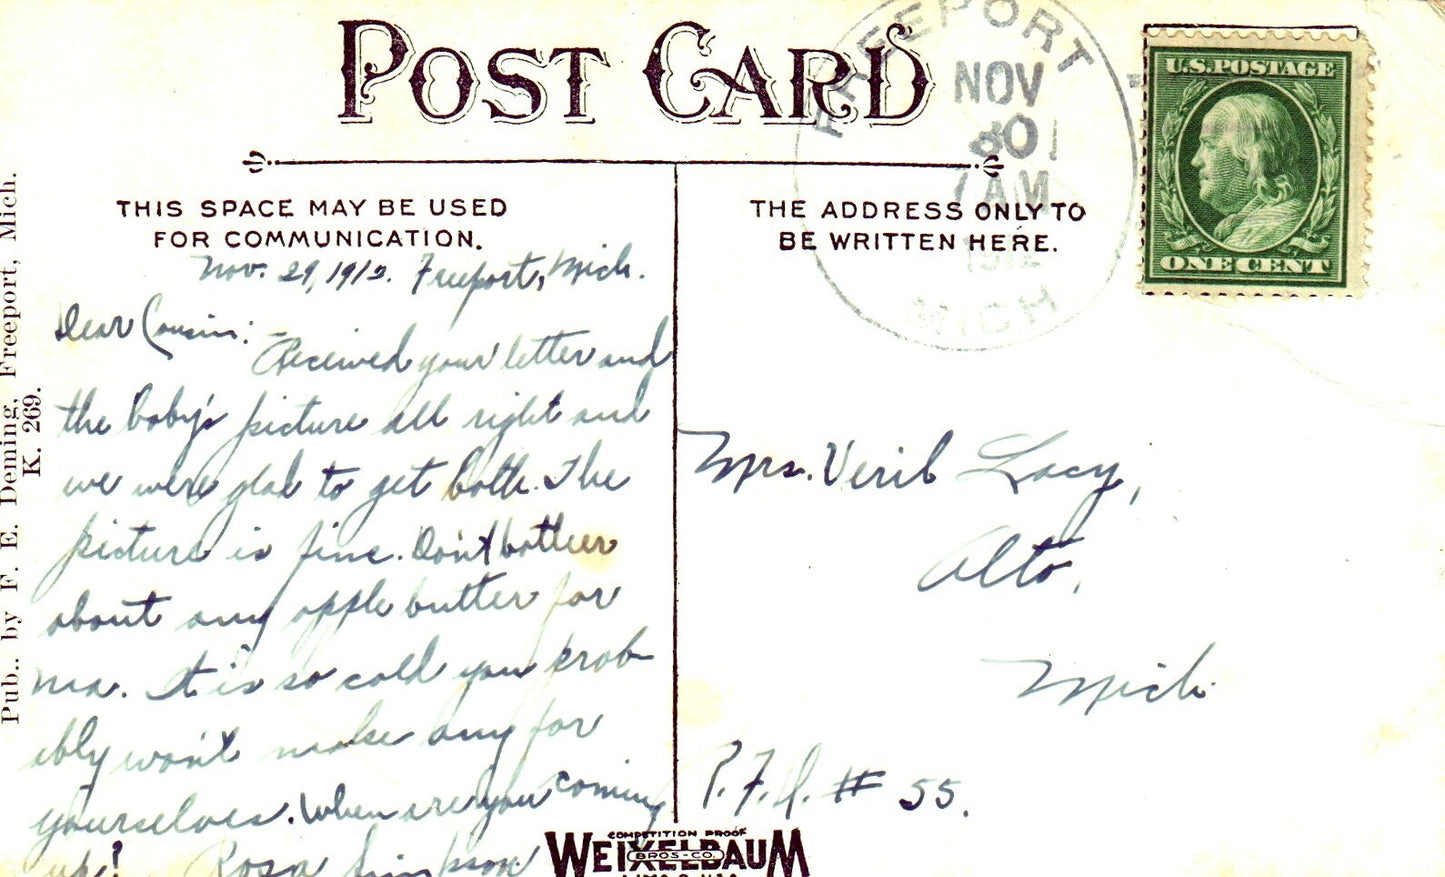 POST CARD
THIS SPACE MAY BE USED
FOR COMMUNICATION.
Nov. 29, 1912. Freeport, Mich.
Dear Cousin: -
Received your letter and
the baby's picture all right and
we were glad to get both. The
picture is fine. Don't bother
about any apple butter for
Ma. It is so cold you prob-
ibly won't make any for
yourselves. When are you coming
up? Rosa Simpson
THE ADDRESS ONLY TO
BE WRITTEN HERE.
FREEPORT
NOV
30
7 AM
1912
MICH
U.S. POSTAGE
ONE CENT
Mrs. Veril Lacy,
Alto,
Mich.
R.F.D. # 55.
COMPETITION PROOF
WEIXELBAUM
BROS-CO
LIMA O. USA
Pub. by F. E. Deming, Freeport, Mich.
K. 269.